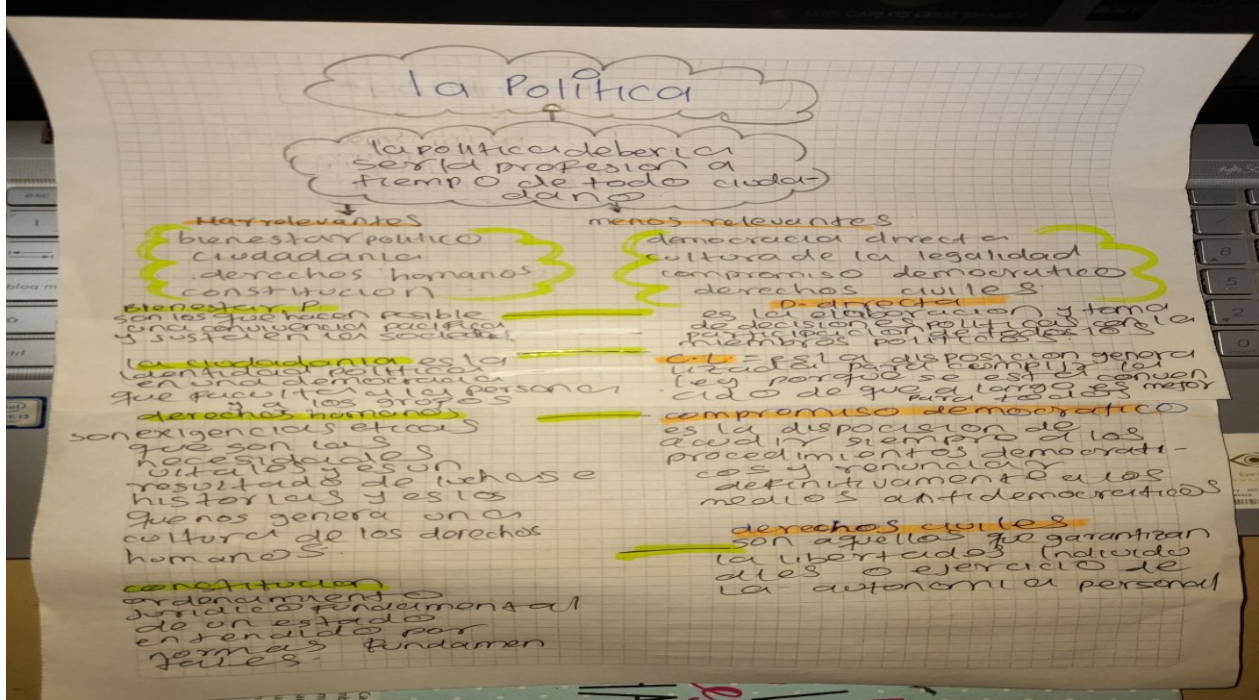 la Politica
la politica deberia
ser la profesion a
tiempo de todo ciuda-
dano
menos relevantes
bienestar politico
ciudadania
derechos humanos
constitucion
democracia directa
cultura de la legalidad
compromiso democratico
derechos civiles
Bienestar P.
posible
una convivencia pacifica
y
la ciudadania es la
en una democracia
que faculitan a la persona
y a los grupos
derechos humanos
son exigencias eticas
que son las
necesidades
vitales y es un
resultado de luchas e
historias y es los
que nos genera una
cultura de los derechos
humanos.
constitucion
ordenamiento
juridico fundamental
de un estado
entendido por
normas fundamen
tales.
D. directa
es la elaboracion y toma
de decisiones politicas con la
participacion de todos los
miembros politicos.
C.L = es la disposicion genera
lizada para cumplir la
ley porque se esta conven
cido de que a largo es mejor
para todos
compromiso democratico
es la disposicion de
acudir siempre a los
procedimientos democrati-
cos y renunciar
definitivamente a los
medios antidemocraticos
derechos civiles
son aquellos que garantizan
la libertades individu
ales o ejercicio de
la autonomia personal
esc